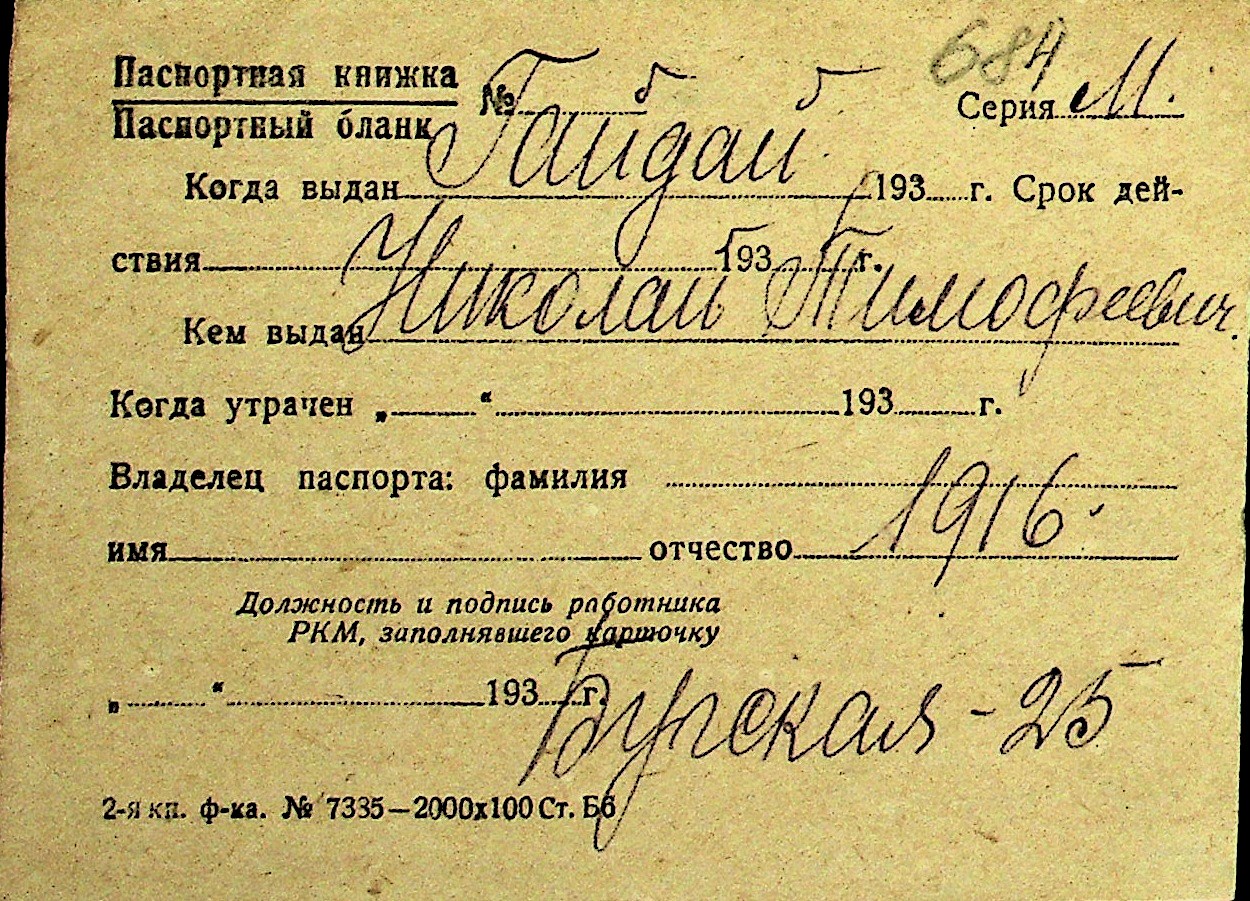 684
Паспортная книжка
Паспортный бланк
№
Серия М.
Гайдай
Когда выдан 193 г. Срок дей-
ствия 193 г.
Николай Тимофеевич.
Кем выдан
Когда утрачен „ “ 193 г.
Владелец паспорта: фамилия
1916.
имя отчество
Должность и подпись работника
РКМ, заполнявшего карточку
„ “ 193 г.
Бугская - 25
2-я кп. ф-ка. № 7335—2000х100 Ст. Бб